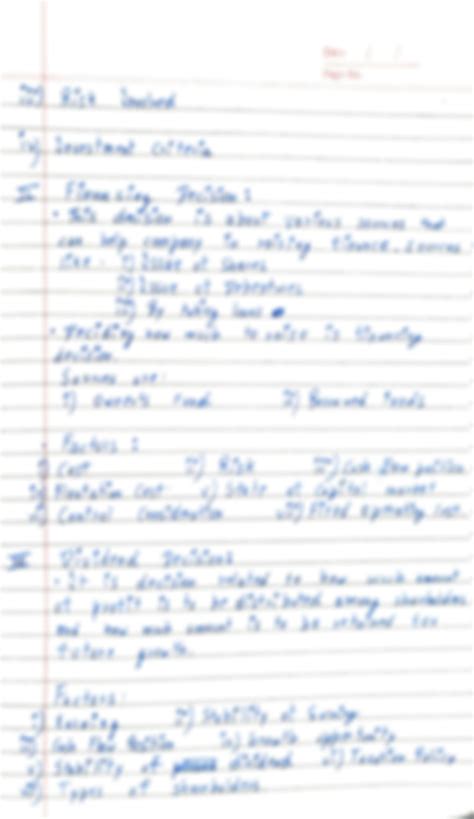 Date / /
Page No.
iii) Risk Involved
iv) Investment Criteria
II Financing Decision :
• This decision is about various sources that
can help company in raising finance. Sources
like : i) Issue of Shares
ii) Issue of Debentures
iii) By taking loans
• Deciding how much to raise is financing
decision.
Sources are :
1) Owner's fund 2) Borrowed funds
• Factors :
i) Cost ii) Risk iii) Cash flow position
iv) Floatation Cost v) State of capital market
vi) Control Consideration vii) Fixed operating cost.
III Dividend Decision :
• It is decision related to how much amount
of profit is to be distributed among shareholders
and how much amount is to be retained for
future growth.
Factors :
i) Earning ii) Stability of Earnings
iii) Cash flow Position iv) Growth opportunity
v) Stability of dividend vi) Taxation Policy
vii) Types of shareholders.